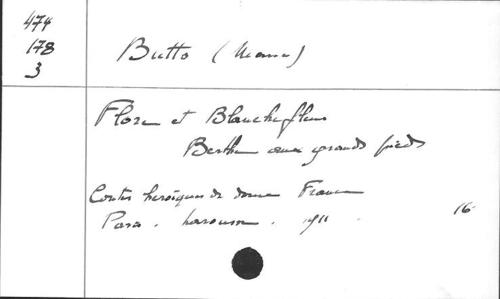 474
178
3
Butts (Marie)
Flore et Blanchefleur
Berthe aux grands pieds
Contes héroïques de douce France
Paris. Larousse. 1911 16